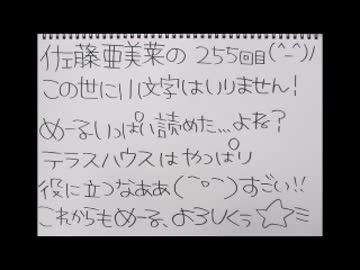 佐藤亜美菜の255回目(^-^)/
この世に小文字はいりません!
めーるいっぱい読めた…よね?
テラスハウスはやっぱり
役に立つなああ(¯o¯)すごい!!
これからもめーる、よろしくっ☆彡